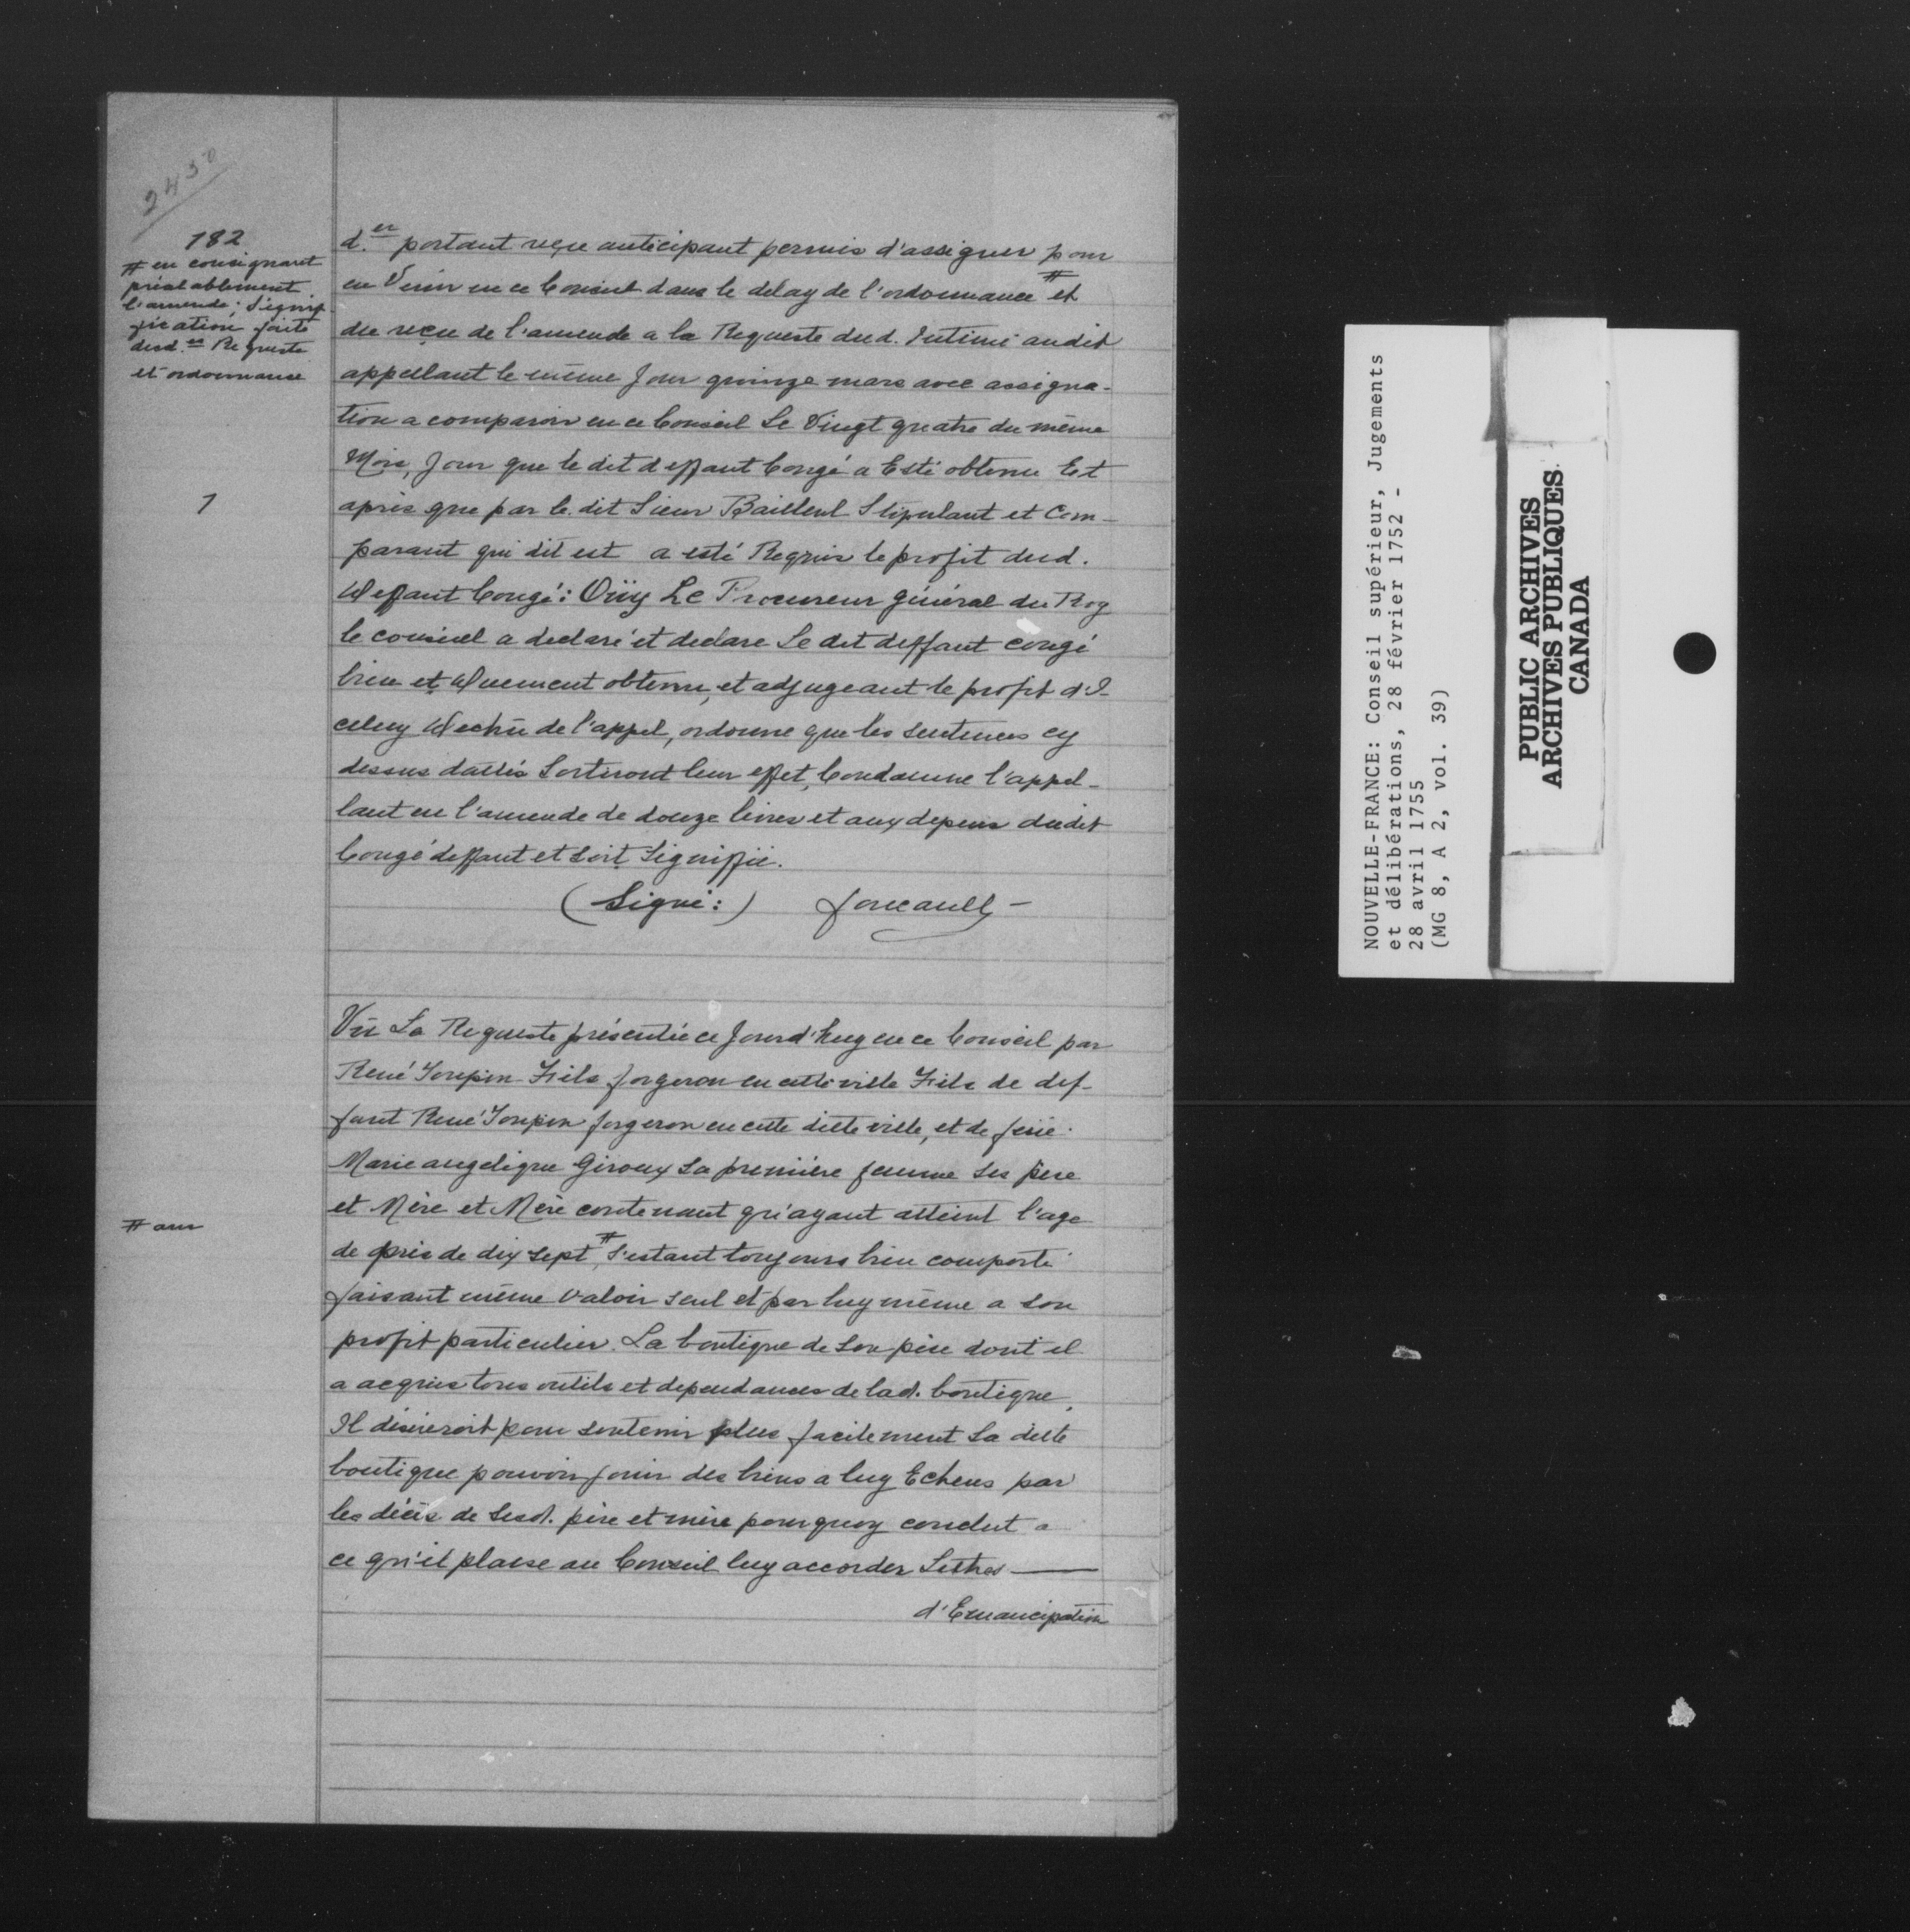 2450
182
# en consignant
préalablement
l'amende; Signif-
fication faite
desd.es Requeste
et ordonnance
d.er portant reçu anticipant permis d'assigner pour
en Venir en ce Conseil dans le delay de l'ordonnance # et
du reçu de l'amende a la Requeste dud. Intimé audit
appellant le même Jour quinze mars avec assigna-
tion a comparoir en ce Conseil Le Vingt quatre du même
Mois, Jour que le dit deffaut Congé a Esté obtenu Et
1
après que par le dit Sieur Bailleul Stipulant et Com-
parant qui dit est a esté Requis le profit dud.
Deffaut Congé: Oüy Le Procureur général du Roy
le conseil a declaré et declare Le dit deffaut congé
bien et Duement obtenu, et adjugeant le profit d'I-
celuy Dechü de l'appel, ordonne que les sentences cy
dessus dattés Sortiront leur effet, Condamne l'appel-
lant en l'amende de douze livres et aux depens dudit
Congé deffaut et soit Signiffié.
(Signé:) foucault
Vü La Requeste présentée ce Jourd'huy en ce Conseil par
René Toupin Fils forgeron en cette ville Fils de def-
funt René Toupin forgeron en cette ditte ville, et de feüe
Marie angelique Giroux sa première femme ses père
et Mère et Mère contenant qu'ayant atteint l'age
# ans
de près de dix sept #, s'estant toujours bien comporté
faisant même valoir seul et par luy même a son
profit particulier. La boutique de son père dont il
a acquis tous outils et dependances de lad. boutique,
Il désireroit pour soutenir plus facilement La ditte
boutique pouvoir jouir des biens a luy Echeus par
les décès de sesd. père et mère pourquoy conclut a
ce qu'il plaise au Conseil luy accorder Lettres
d'Emancipation
NOUVELLE-FRANCE: Conseil supérieur, Jugements
et délibérations, 28 février 1752 -
28 avril 1755
(MG 8, A 2, vol. 39)
PUBLIC ARCHIVES
ARCHIVES PUBLIQUES
CANADA